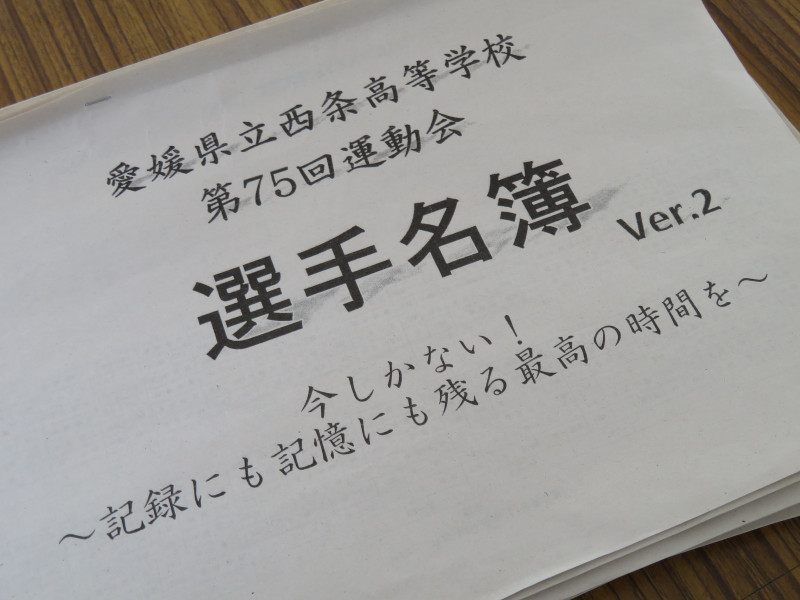 愛媛県立西条高等学校
第75回運動会
選手名簿 Ver.2
今しかない！
～記録にも記憶にも残る最高の時間を～